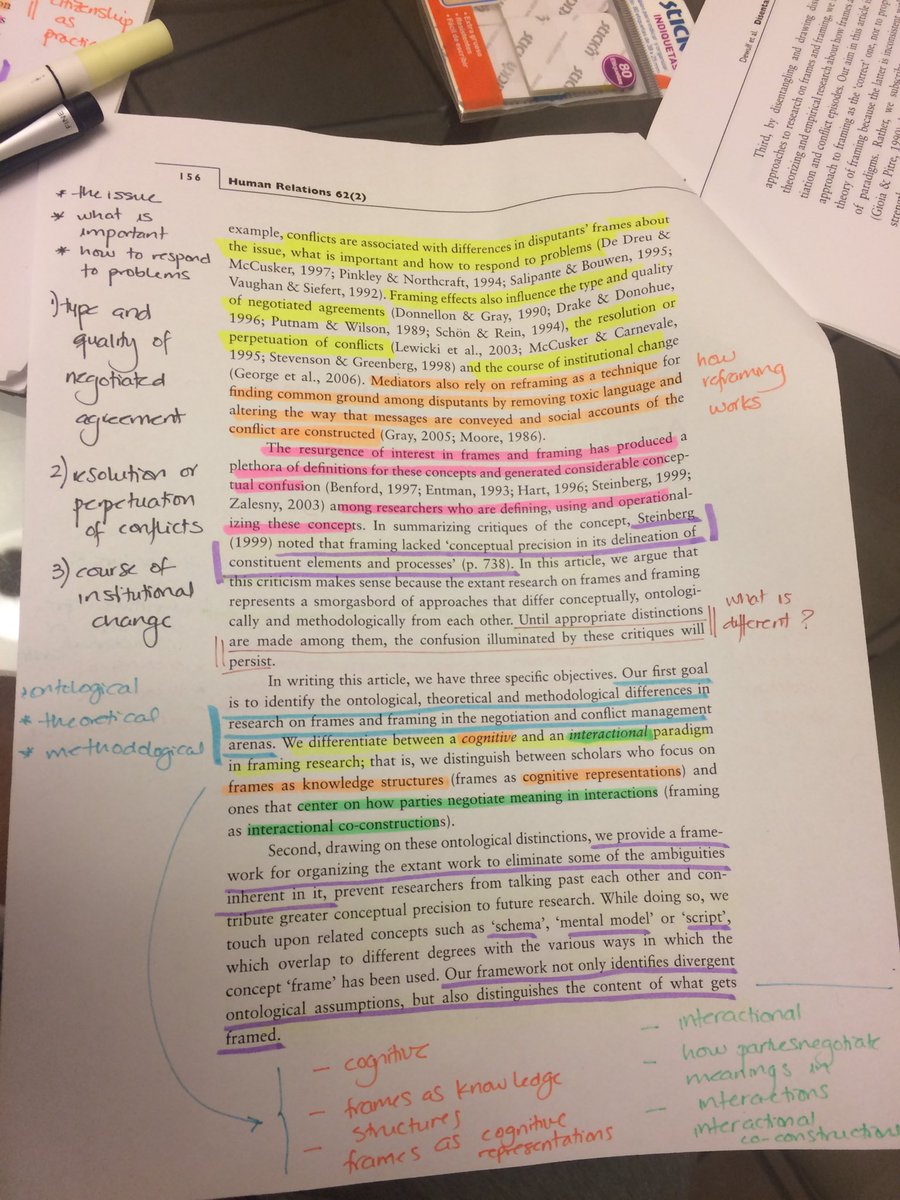 citizenship
as
FINE
Extra grueso
Resistentes
Fácil de escribir
stick'n
80
STICK
INDIQUETAS
Dewulf et al.
Third, by disentangling and drawing
approaches to research on frames and framing, we
theorizing and empirical research about how frames
tiation and conflict episodes. Our aim in this article is
approach to framing as the 'correct' one, nor to
theory of framing because the latter is inconsistent
of paradigms. Rather, we
(Gioia & Pitre, 1990)
156
Human Relations 62(2)
* the issue
* what is
important
* how to respond
to problems
1) type and
quality of
negotiated
agreement
2) resolution or
perpetuation
of conflicts
3) course of
institutional
change
example, conflicts are associated with differences in disputants' frames about
the issue, what is important and how to respond to problems (De Dreu &
McCusker, 1997; Pinkley & Northcraft, 1994; Salipante & Bouwen, 1995;
Vaughan & Siefert, 1992). Framing effects also influence the type and quality
of negotiated agreements (Donnellon & Gray, 1990; Drake & Donohue,
1996; Putnam & Wilson, 1989; Schön & Rein, 1994), the resolution or
perpetuation of conflicts (Lewicki et al., 2003; McCusker & Carnevale,
1995; Stevenson & Greenberg, 1998) and the course of institutional change
(George et al., 2006). Mediators also rely on reframing as a technique for
finding common ground among disputants by removing toxic language and
altering the way that messages are conveyed and social accounts of the
conflict are constructed (Gray, 2005; Moore, 1986).
how
reframing
works
The resurgence of interest in frames and framing has produced a
plethora of definitions for these concepts and generated considerable concep-
tual confusion (Benford, 1997; Entman, 1993; Hart, 1996; Steinberg, 1999;
Zalesny, 2003) among researchers who are defining, using and operational-
izing these concepts. In summarizing critiques of the concept, Steinberg
(1999) noted that framing lacked 'conceptual precision in its delineation of
constituent elements and processes' (p. 738). In this article, we argue that
this criticism makes sense because the extant research on frames and framing
represents a smorgasbord of approaches that differ conceptually, ontologi-
cally and methodologically from each other. Until appropriate distinctions
are made among them, the confusion illuminated by these critiques will
persist.
what is
different?
* ontological
* theoretical
* methodological
In writing this article, we have three specific objectives. Our first goal
is to identify the ontological, theoretical and methodological differences in
research on frames and framing in the negotiation and conflict management
arenas. We differentiate between a cognitive and an interactional paradigm
in framing research; that is, we distinguish between scholars who focus on
frames as knowledge structures (frames as cognitive representations) and
ones that center on how parties negotiate meaning in interactions (framing
as interactional co-constructions).
Second, drawing on these ontological distinctions, we provide a frame-
work for organizing the extant work to eliminate some of the ambiguities
inherent in it, prevent researchers from talking past each other and con-
tribute greater conceptual precision to future research. While doing so, we
touch upon related concepts such as 'schema', 'mental model' or 'script',
which overlap to different degrees with the various ways in which the
concept 'frame' has been used. Our framework not only identifies divergent
ontological assumptions, but also distinguishes the content of what gets
framed.
– cognitive
– frames as knowledge
structures
– frames as cognitive
representations
– interactional
– how parties negotiate
meanings in
interactions
– interactional
co-constructions